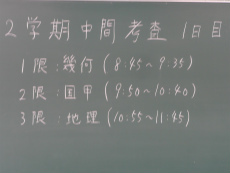 2学期中間考査 1日目
1限:幾何(8:45~9:35)
2限:国甲(9:50~10:40)
3限:地理(10:55~11:45)